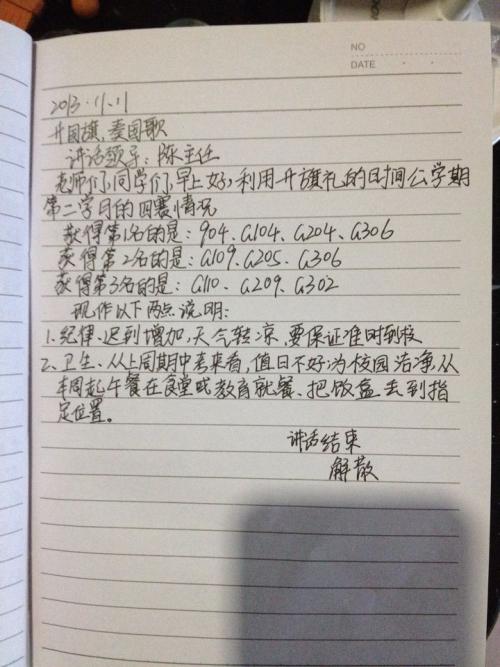 NO
DATE
2013.11.11
升国旗,奏国歌
讲话领导:陈主任
老师们,同学们,早上好,利用升旗礼的时间公学期
第二学月的四赛情况
获得第1名的是:904、G104、G204、G306
获得第2名的是:G109、G205、G306
获得第3名的是:G110、G209、G302
现作以下两点说明:
1.纪律、迟到增加,天气转凉,要保证准时到校
2、卫生、从上周期中考来看,值日不好,为校园洁净,从
本周起,午餐在食堂或教育就餐、把饭盒丢到指
定位置。
讲话结束
解散